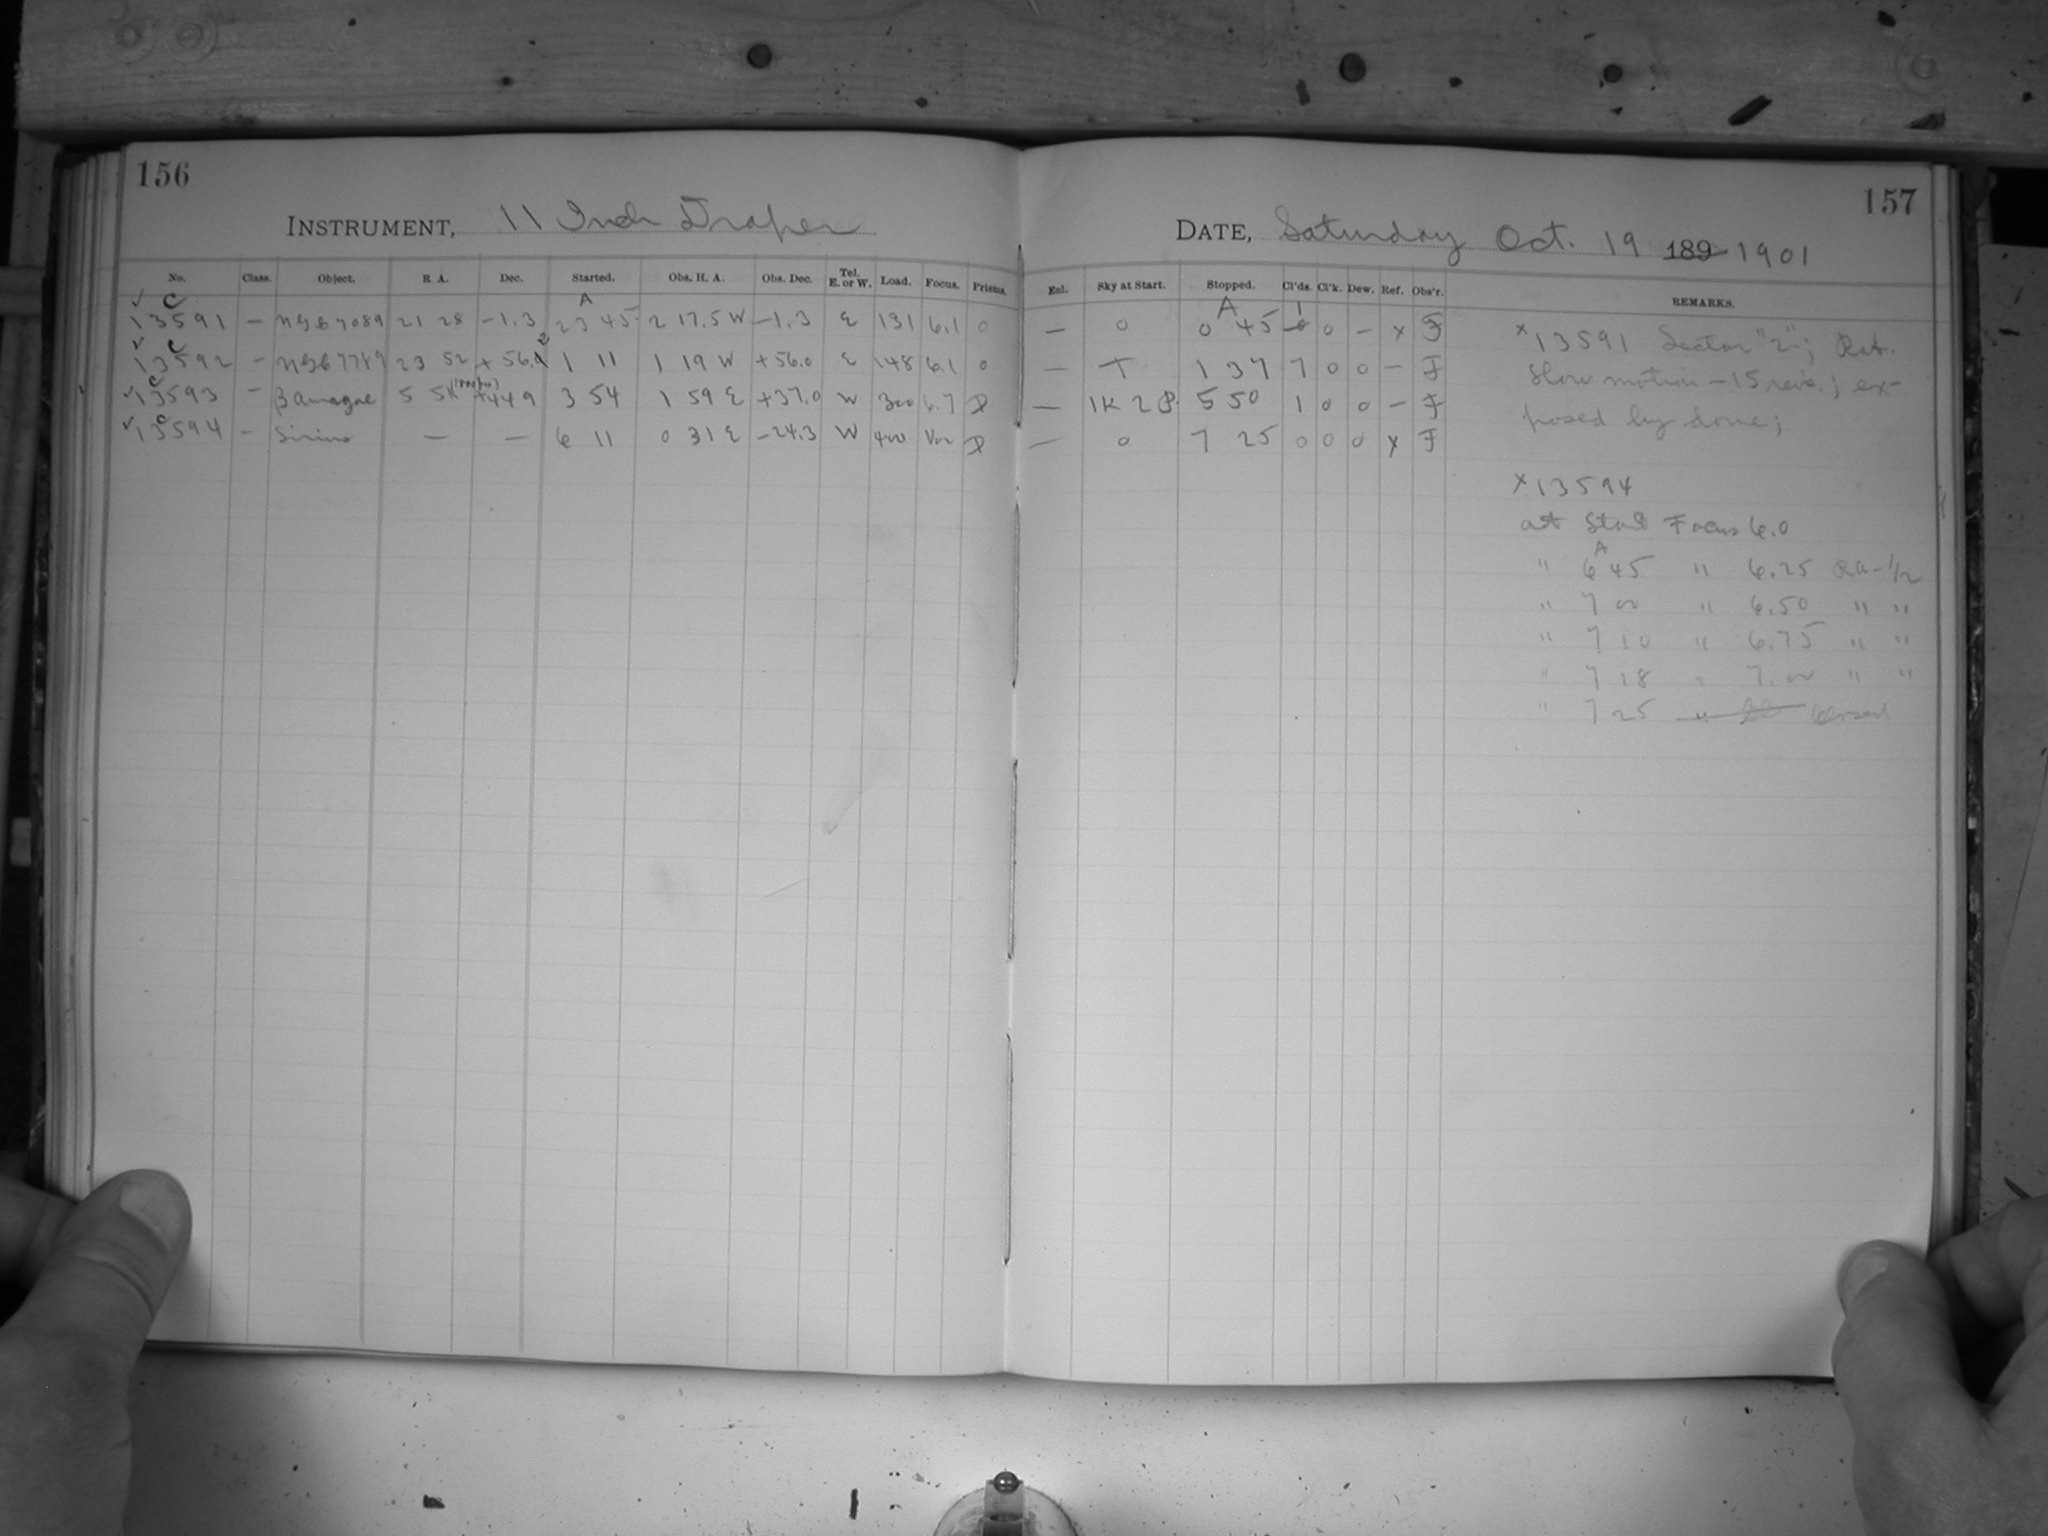 156
INSTRUMENT, 11 Inch Draper
No. Class. Object. R. A. Dec. Started. Obs. H. A. Obs. Dec. Tel. E. or W. Load. Focus. Prisms.
✓ C A
13591 — NGC 7089 21 28 —1.3 23 45 2 17.5 W —1.3 E 131 6.1 0
✓ C 2
13592 — NGC 7789 23 52 +56.9 1 11 1 19 W +56.0 E 148 6.1 0
✓ C
13593 — β auragae 5 54 +449 3 54 1 59 E +37.0 W 300 6.7
✓ C
13594 — Sirius — — 6 11 0 31 E —24.3 W 400 Var
157
DATE, Saturday Oct. 19 189 1901
Enl. Sky at Start. Stopped. Cl'ds. Cl'k. Dew. Ref. Obs'r. REMARKS.
A 1
— 0 0 45 0 0 — x F
— T 1 37 7 0 0 — F
— 1K 2 P. 5 50 1 0 0 — F
— 0 7 25 0 0 0 x F
x 13591 Sector "2"; Rat.
slow motion —15 revs.; ex-
posed by dome;
x 13594
at Start Focus 6.0
A
" 6 45 " 6.25 RA-1/2
" 7 00 " 6.50 " "
" 7 10 " 6.75 " "
" 7 18 " 7.00 " "
" 7 25 " closed